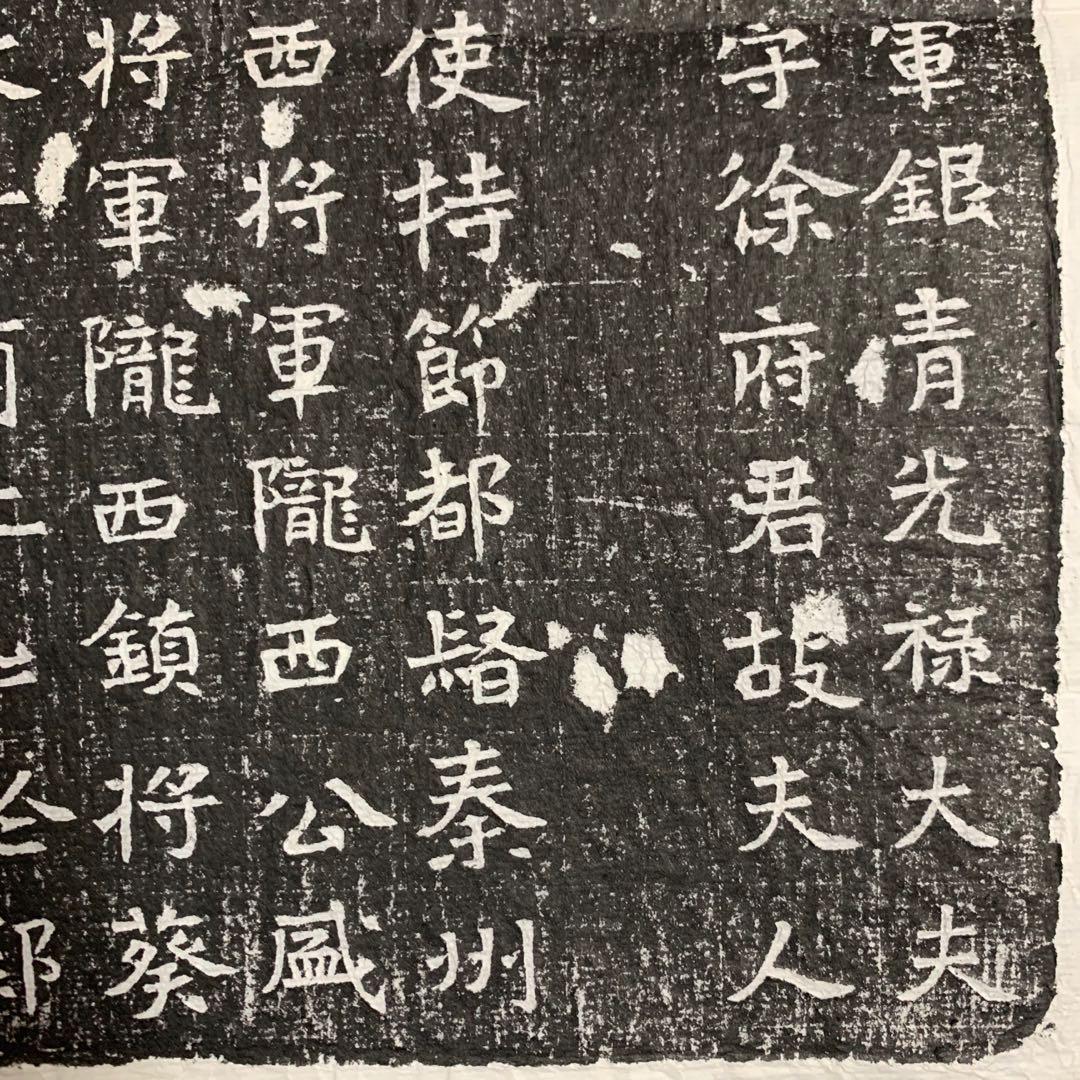 軍銀青光祿大夫
守徐府君故夫人
使持節都督秦州
西將軍隴西公盛
將軍隴西鎮將葵